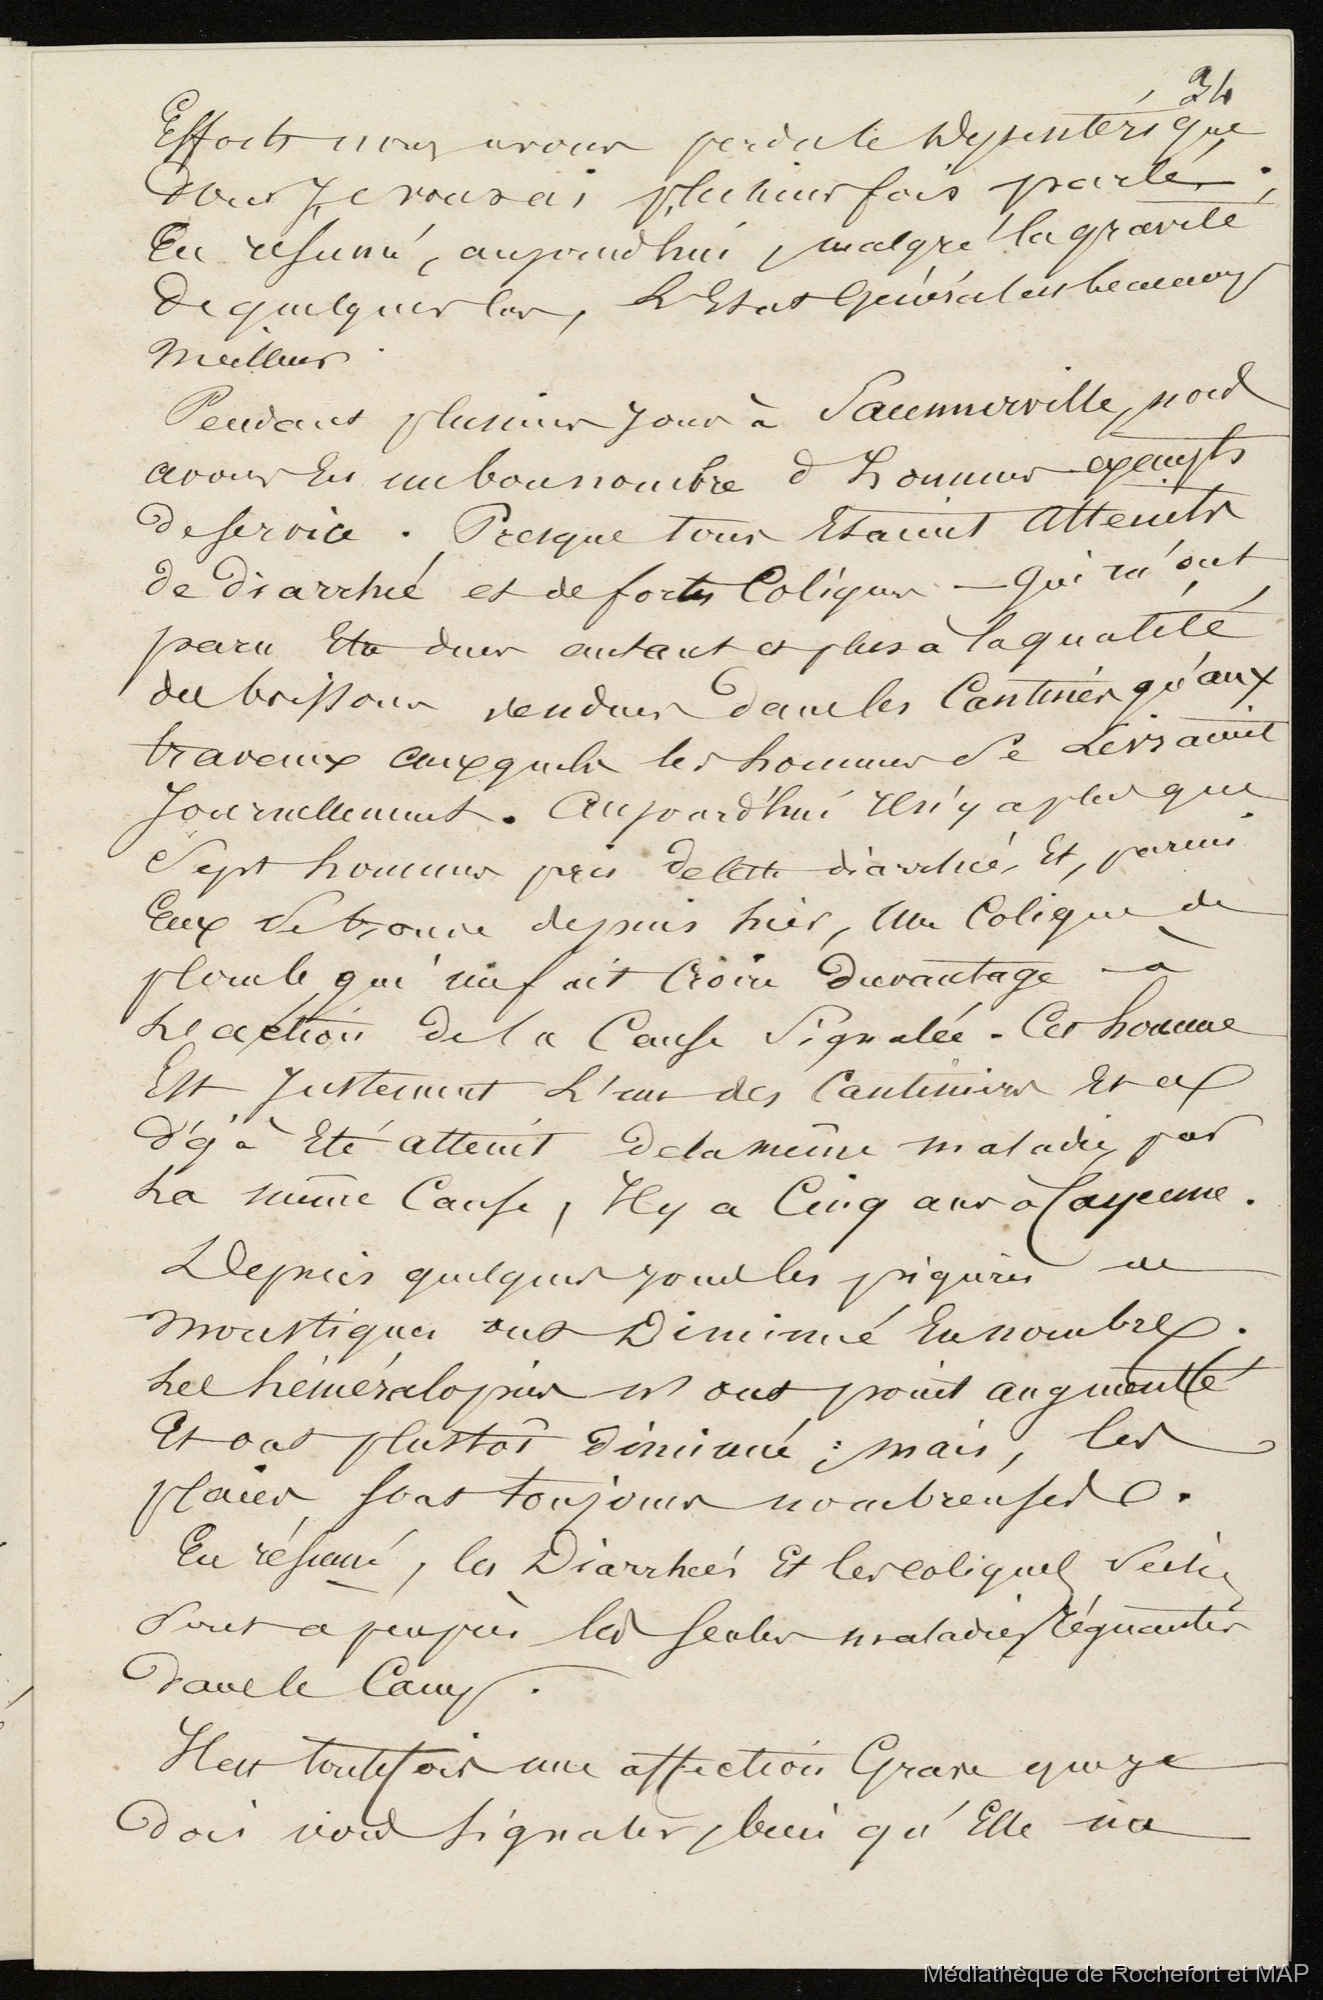 34
Efforts nous avons perdu le dysentérique
dont Je vous ai plusieurs fois parlé.
En résumé, aujourdhui, malgré la gravité
de quelques cas, L'Etat Général est beaucoup
meilleur.
Pendant plusieurs Jours à Saumerville, nous
avons Eu un bon nombre d'hommes exempts
de service. Presque tous Etaient Atteints
de diarrhée et de fortes Coliques - qui m'ont
paru Etre dues autant et plus à la qualité
des boissons vendues dans les Cantines qu'aux
travaux auxquels les hommes se Livraient
Journellement. Aujourd'hui Il n'y a plus que
Sept hommes pris de cette diarrhée, Et, parmi
Eux se trouve depuis hier, Une Colique de
plomb qui me fait Croire davantage à
L'action de la Cause Signalée. Cet homme
Est Justement L'un des Cantiniers Et a
déjà Eté atteint de la même maladie, par
La même Cause, Il y a Cinq ans à Cayenne.
Depuis quelques jours les piqûres de
moustiques ont Diminué En nombre.
Les héméralopies n'ont point augmenté
Et ont plustôt diminué ; mais, les
plaies sont toujours nombreuses.
En résumé, les Diarrhées Et les coliques
Sont à peu près les seules maladies régnantes
dans le Camp.
Il est toutefois une affection Grave que je
dois vous signaler, bien qu'Elle n'a
Médiathèque de Rochefort et MAP